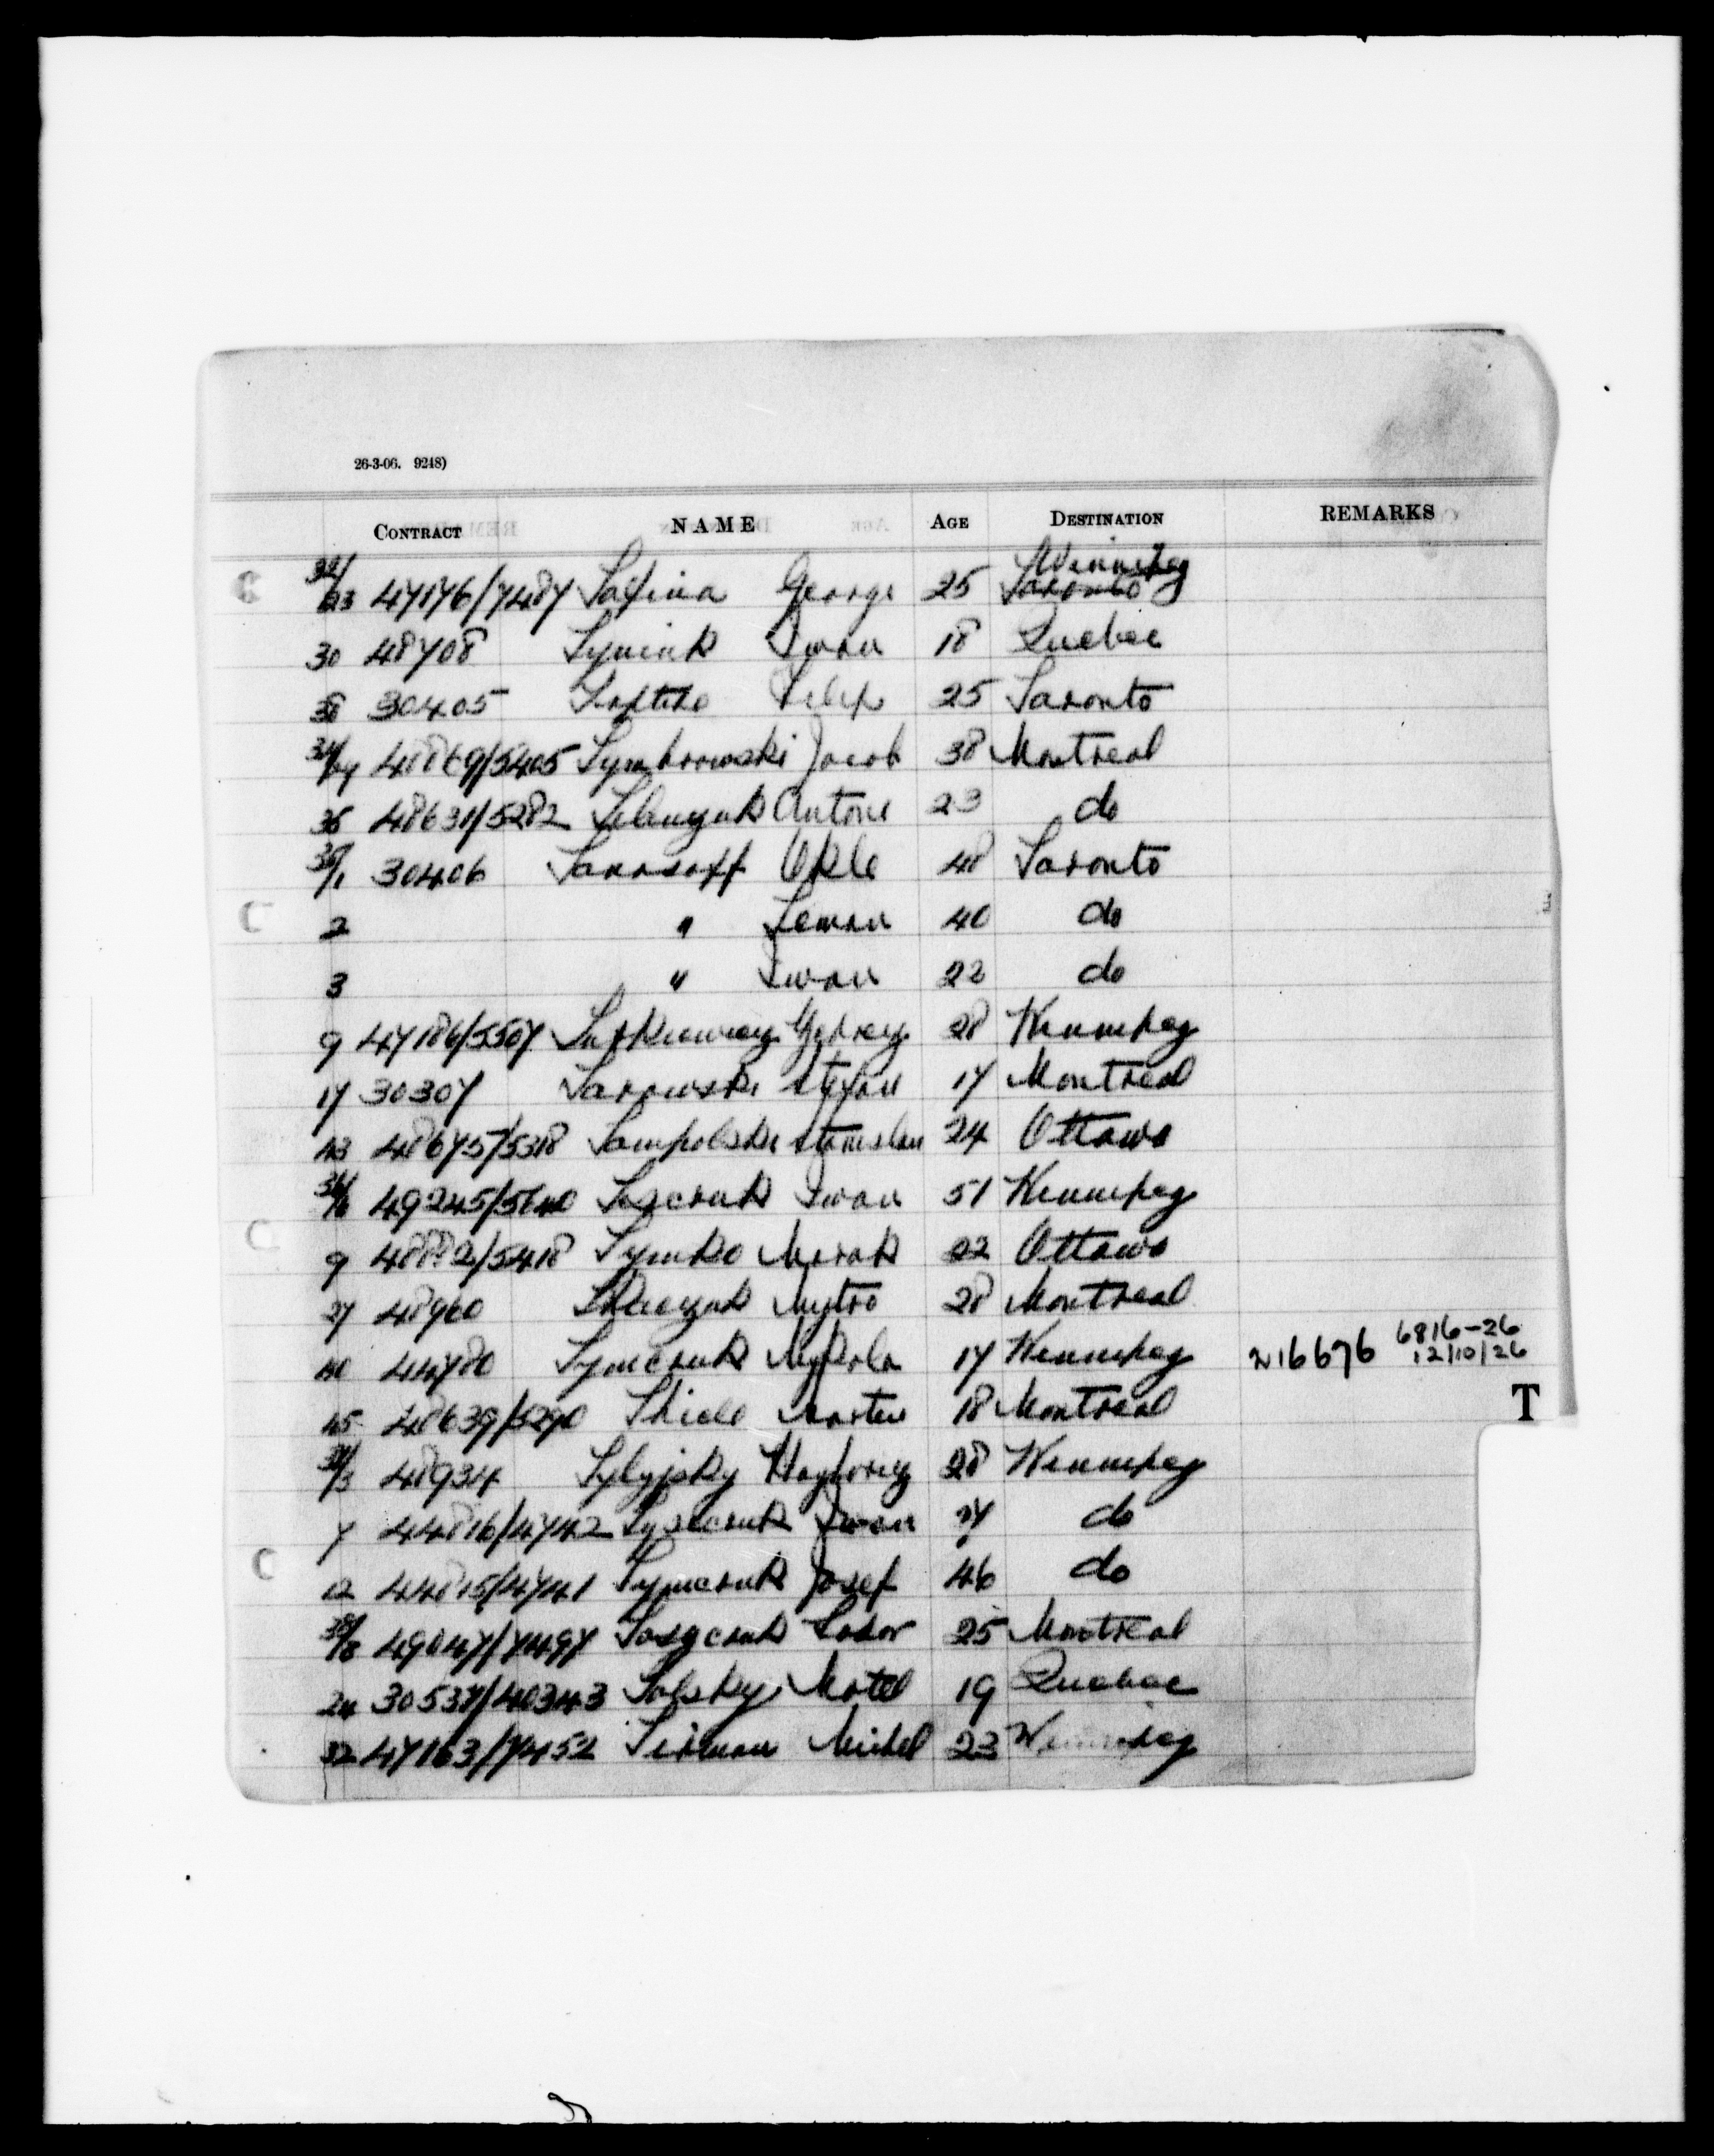 26-3-06. 9248)
CONTRACT NAME AGE DESTINATION REMARKS
Winnipeg
32/23 47176/7487 Tafina George 25 Toronto
30 48708 Tymink Iwan 18 Quebec
38 30405 Felix 25 Toronto
34/24 48869/5405 Tymbrowski Jacob 38 Montreal
36 48631/5282 Antone 23 do
35/1 30406 Tarasoff 48 Toronto
2 " Teman 40 do
3 " Iwan 22 do
9 47186/5507 28 Winnipeg
17 30307 Tarowski Stefan 17 Montreal
43 48675/5318 Tampolski Stanislau 24 Ottawa
36/6 49245/5640 Iwan 51 Winnipeg
9 48882/5418 Tymko Marak 22 Ottawa
27 48960 Tkaczuk Mytro 28 Montreal
40 44780 Tymczuk Mykola 17 Winnipeg N16676 6816-26
12/10/26
T
45 48639/5290 Martin 18 Montreal
38/3 48934 Tylyjsky Hryhorey 28 Winnipeg
7 44816/4742 Iwan 27 do
12 44815/4741 Tymczuk Josef 46 do
39/8 49047/7497 Todor 25 Montreal
24 30538/40343 Tolsky Motel 19 Quebec
32 47163/7452 Terman Michel 23 Winnipeg